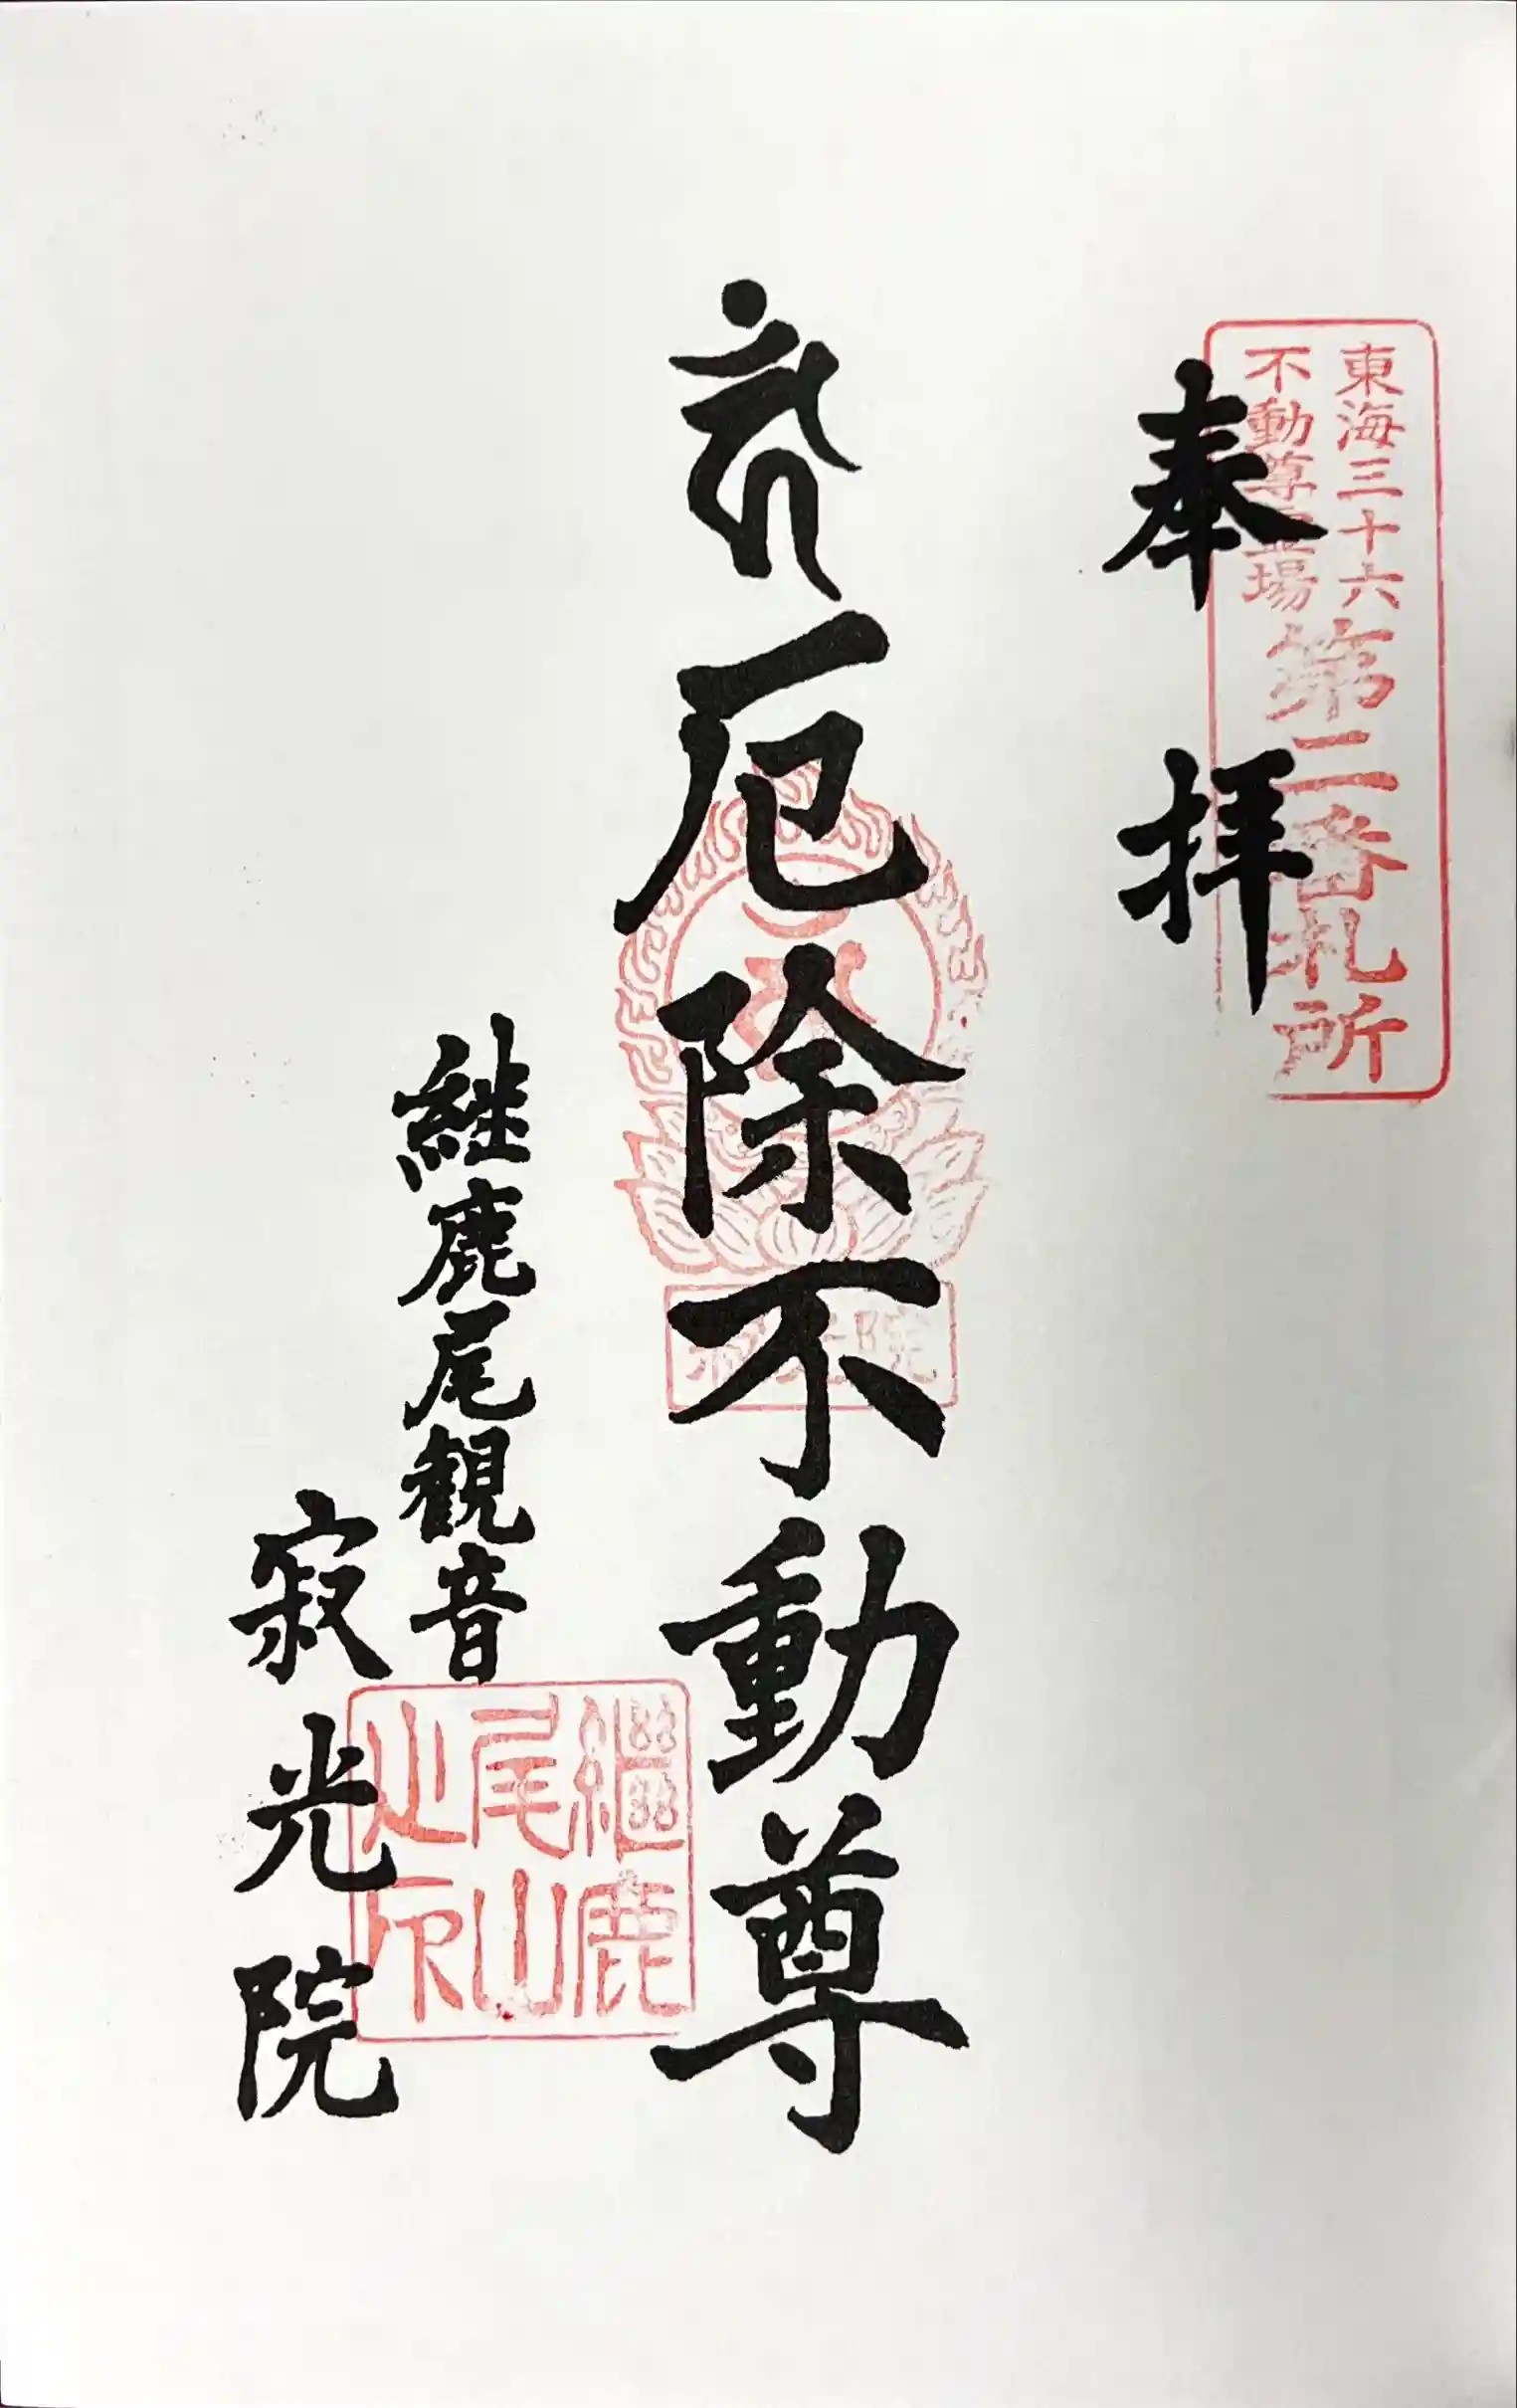 東海三十六
不動尊霊場
第二番札所
奉拝
厄除不動尊
継鹿尾観音
寂光院
繼鹿
尾山
之印